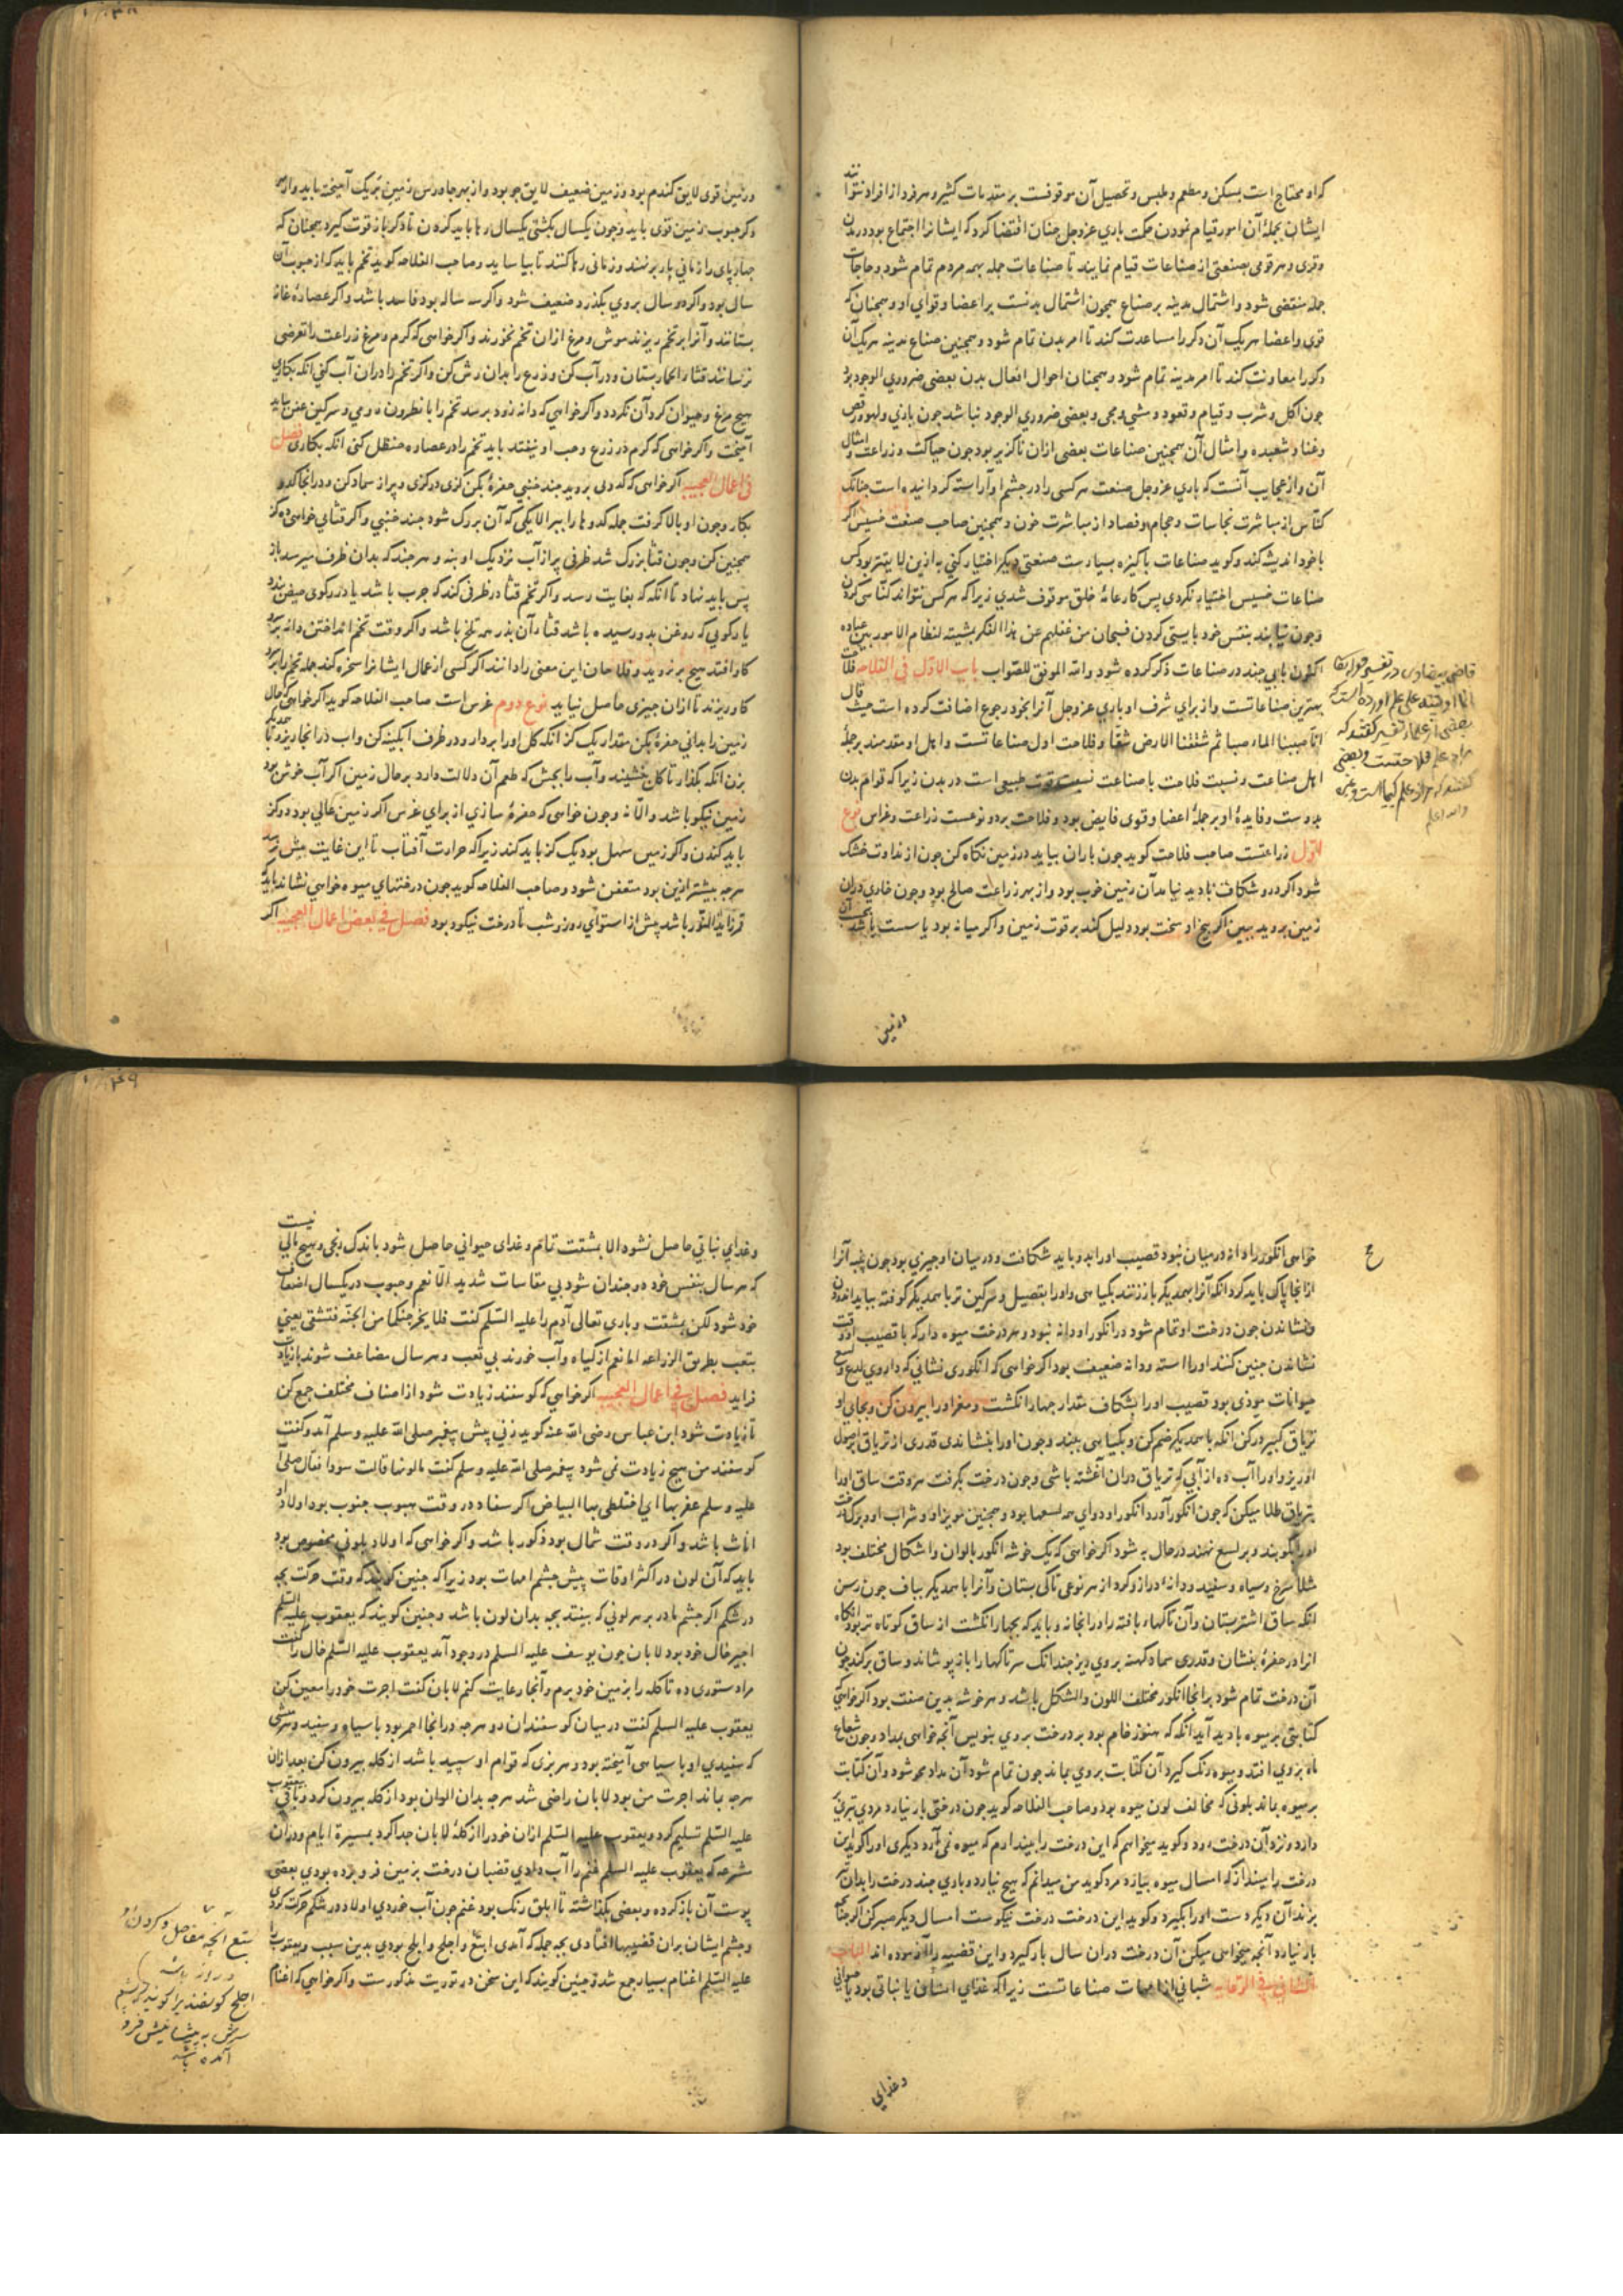 که او محتاج است بمسکن و مطعم و ملبس و تحصیل آن موقوفست بر مقدمات کثیر و هر فرد از افراد نتوانند
ایشان بجملهٔ آن امور قیام نمودن حکمت باری عز و جل چنان اقتضا کرد که ایشانرا اجتماع بود در مدن
و قری و هر قومی بصنعتی از صناعات قیام نمایند تا صناعات جمله بهمه مردم تمام شود و حاجات
جمله منقضی شود و اشتمال مدینه بر صناع همچون اشتمال بدنست بر اعضا و قوای او و همچنان که
قوی و اعضا هریک آن دکر را مساعدت کند تا امر بدن تمام شود و همچنین صناع مدینه هریک آن
دکر را معاونت کند تا امر مدینه تمام شود و همچنان احوال افعال بدن بعضی ضروری الوجود بود
چون اکل و شرب و قیام و قعود و مشی و مجی و بعضی ضروری الوجود نباشد چون بازی و لهو و رقص
و غنا و شعبده و امثال آن همچنین صناعات بعضی ازان ناکزیر بود چون حیاکت و زراعت و امثال
آن و از عجایب آنست که باری عز و جل صنعت هر کسی را در چشم او آراسته کردانیده است چنانک
کناس از مباشرت نجاسات و حجام و فصاد از مباشرت خون و همچنین صاحب صنعت خسیس اکر
با خود اندیشه کند و کوید صناعات پاکیزه بسیارست صنعتی دیکر اختیار کنی به ازین لایقتر بود کس
صناعات خسیس اختیار نکردی پس کار عامهٔ خلق موقوف شدی زیرا که هر کس نتواند کناسی کردن
و چون نیابند بنفس خود بایستی کردن فسبحان من غفلهم عن هذا الفکر بمشیته لنظام الامور بین عباده
اکنون بابی چند در صناعات ذکر کرده شود والله الموفق للصواب باب الاول فی الفلاحه فلاحت
بهترین صناعاتست و از برای شرف او باری عز و جل آنرا بخود رجوع اضافت کرده است حیث قال
انا صببنا الماء صبا ثم شققنا الارض شقا و فلاحت اول صناعاتست و اهل او مقدمند بر جملهٔ
اهل صناعت و نسبت فلاحت با صناعت نسبت قوت طبیعی است در بدن زیرا که قوام بدن
بدوست و فایدهٔ او بر جملهٔ اعضا و قوی فایض بود و فلاحت بر دو نوعست زراعت و غراس نوع
اول زراعتست صاحب فلاحت کوید چون باران بیاید در زمین نکاه کن چون از نداوت خشک
شود اکر درو شکاف پادید نیامد آن زمین خوب بود و از بهر زراعت صالح بود و چون خاری دران
زمین بروید ببین اکر بیخ او سخت بود دلیل کند بر قوت زمین و اکر میانه بود یا سست باشد بحسب آن
در زمین
قاضی بیضاوی در تفسیر قوله تعالی
انما اوتیته علی علم آورده است که
بعضی از علماء تفسیر کفتند که
مراد علم فلاحتست و بعضی
کفتند که مراد علم کیمیاست و غیره
والله اعلم
در زمین قوی لایق کندم بود و زمین ضعیف لایق جو بود و از بهر جاورس زمین بریک آمیخته باید و از بهر
دکر حبوب زمین قوی باید و چون یکسال بکشتی یکسال رها باید کردن تا دکر باز قوت کیرد همچنان که
چهارپای را زمانی بار برنهند و زمانی رها کنند تا بیاساید و صاحب الفلاحه کوید تخم باید که از حبوب آن
سال بود و اکر دو سال بروی بکذرد ضعیف شود و اکر سه ساله بود فاسد باشد و اکر عصارهٔ
بستانند و آنرا بر تخم ریزند موش و مرغ ازان تخم نخورند و اکر خواهی که کرم و مرغ زراعت را تعرض
نرسانند قثاء الحمار بستان و در آب کن و زرع را بدان رش کن و اکر تخم را دران آب کنی انکه بکاری
هیچ مرغ و حیوان کرد آن نکردد و اکر خواهی که دانه زود برسد تخم را با نطرون رومی و سرکین باید
آمیخت و اکر خواهی که کرم در زرع و حب او نیفتد باید تخم را در عصاره حنظل کنی انکه بکاری فصل
فی اعمال العجیبه اکر خواهی که کدوی بروید چند خنبی حفرهٔ بکن کزی در کزی و پر از سماد کن و در آنجا کدو
بکار و چون او بالا کرفت جمله کدوها را ببر الا یکی که آن بزرک شود چند خنبی و اکر قثای خواهی
همچنین کن و چون قثا بزرک شد ظرفی پر از آب نزدیک او بنه و هرچند که بدان ظرف میرسد باز
پس باید نهاد تا انکه که بغایت رسد و اکر تخم قثا در ظرفی کنند که چرب باشد یا در رکوی حیض بندند
یا رکویی که روغن بدو رسیده باشد قثاء آن بذر همه تلخ باشد و اکر وقت تخم انداختن دانه بر سرو
کاو افتد هیچ بر نروید و فلاحان این معنی را دانند اکر کسی از عمال ایشانرا سخره کند جمله تخم را بر سرو
کاو ریزند تا ازان چیزی حاصل نیاید نوع دوم غرس است صاحب الفلاحه کوید اکر خواهی که حال
زمین را بدانی حفرهٔ بکن مقدار یک کز انکه کل او را بردار و در ظرف ابکینه کن و آب در آنجا ریز و
بزن انکه بکذار تا کل خشیند و آب را بچش که طعم آن دلالت دارد بر حال زمین اکر آب خوش بود
زمین نیکو باشد و الا نه و چون خواهی که حفرهٔ سازی از برای غرس اکر زمین عالی بود دو کز
باید کندن و اکر زمین سهل بود یک کز باید کند زیرا که حرارت آفتاب تا این غایت بیش نرسد
هرچه بیشتر ازین بود متعفن شود و صاحب الفلاحه کوید چون درختهای میوه خواهی نشاند باید که
قمر زاید النور باشد پیش از استوای روز و شب تا درخت نیکو بود فصل فی بعض اعمال العجیبه اکر
خواهی انکور را دانه در میان نبود قضیب او را بدو باید شکافت و در میان او چیزی بود چون پنبه آنرا
ازانجا پاک باید کرد انکه آنرا بهمدیکر باز زنند بکیاهی و او را بعنصل و سرکین تر با همدیکر کوفته بباید اندودن
و نشاندن چون درخت او تمام شود در انکور او دانه نبود و هر درخت میوه دار که با قضیب او وقت
نشاندن چنین کنند او را استه و دانه ضعیف بود اکر خواهی که انکوری نشانی که داروی لدغ و لسع
حیوانات موذی بود قضیب او را بشکاف مقدار چهار انکشت و مغز او را بیرون کن و بجای او
تریاق کبیر در کن انکه با همدیکر ضم کن و بکیاهی ببند و چون او را بنشاندی قدری از تریاق بر اصول
او ریز و او را آب ده از آبی که تریاق دران آغشته باشی و چون درخت بکرفت هر وقت ساق او را
بتریاق طلا میکن که چون انکور آورد انکور او دوای همه لسعها بود و همچنین مویز او و شراب او و برک درخت
او را بکوبند و بر لسع نهند در حال به شود اکر خواهی که یک خوشه انکور بالوان و اشکال مختلف بود
مثلا سرخ و سیاه و سفید و دانهٔ دراز و کرد از هر نوعی تاکی بستان و آنرا با همدیکر بباف چون رسن
انکه ساق اشتر بستان و آن تاکهاء بافته را در انجا نه و باید که بچهار انکشت از ساق کوتاه تر بود انکاه
آنرا در حفرهٔ بنشان و قدری سماد کهنه بروی ریز چندانک سر تاکها را بازپوشاند و ساق پر کند چون
آن درخت تمام شود بر انجا انکور مختلف اللون والشکل باشد و هر خوشه بدین صفت بود اکر خواهی
کتابتی بر میوه پادید آید انکه که هنوز خام بود بر درخت بروی بنویس آنچه خواهی بمداد و چون شعاع
ماه بروی افتد و میوه رنک کیرد آن کتابت بروی بماند چون تمام شود آن مداد محو شود و آن کتابت
بر میوه بماند بلونی که مخالف لون میوه بود و صاحب الفلاحه کوید چون درختی بار نیارد مردی تبری
دارد و نزد آن درخت رود و کوید میخواهم که این درخت را بیندازم که میوه نمی آرد دیکری او را کوید این
درخت را مینداز که امسال میوه بیارد مرد کوید من میدانم که هیچ نیارد و باری چند درخت را بدان تبر
بزند آن دیکر دست او را بکیرد و کوید این درخت درخت نیکوست امسال دیکر صبر کن اکر چنانچه
بار نیارد آنچه میخواهی میکن آن درخت دران سال بار کیرد و این قضیه را آزموده اند الباب
الثانی فی الرعایه شبانی از امهات صناعاتست زیرا که غذای انسان یا نباتی بود یا حیوانی
و غذای
و غذای نباتی حاصل نشود الا بمشقت تمام و غذای حیوانی حاصل شود باندک رنجی و هیچ مالی نیست
که هر سال بنفس خود دو چندان شود بی مقاسات شدید الا نعم و حبوب در یکسال اضعاف
خود شود لکن بمشقت و باری تعالی آدم را علیه السلم کفت فلا یخرجنکما من الجنة فتشقی یعنی
بتعب بطریق الزراعه اما نعم از کیاه و آب خورند بی تعب و هر سال مضاعف شوند بازیاد
فراید فصل فی اعمال العجیبه اکر خواهی که کوسفند زیادت شود از اصناف مختلف جمع کن
تا زیادت شود ابن عباس رضی الله عنه کوید زنی پیش پیغمبر صلی الله علیه و سلم آمد و کفت
کوسفند من هیچ زیادت نمی شود پیغمبر صلی الله علیه و سلم کفت ما لونها قالت سود فقال صلی الله
علیه و سلم عفریها ای اختلطی بها البیاض اکر سفاد در وقت هبوب جنوب بود اولاد او
اناث باشد و اکر در وقت شمال بود ذکور باشد و اکر خواهی که اولاد بلونی مخصوص بود
باید که آن لون در اکثر اوقات پیش چشم امهات بود زیرا که چنین کویند که وقت حرکت بچه
در شکم اکر چشم مادر بر هر لونی که بیفتد بچه بدان لون باشد و چنین کویند که یعقوب علیه السلم
اجیر خال خود بود لابان چون یوسف علیه السلم در وجود آمد یعقوب علیه السلم خال را کفت
مرا دستوری ده تا کله را بزمین خود برم و آنجا رعایت کنم لابان کفت اجرت خود را معین کن
یعقوب علیه السلم کفت درمیان کوسفندان رو هرچه در انجا احمر بود با سیاه و سفید و هر میشی
که سفیدی او با سیاهی آمیخته بود و هر بزی که قوام او سپید باشد از کله بیرون کن بعد ازان
هرچه بماند اجرت من بود لابان راضی شد هرچه بدان الوان بود از کله بیرون کرد و باقی بیعقوب
علیه السلم تسلیم کرد و یعقوب علیه السلم ازان خود را از کلهٔ لابان جدا کرد بمسیرة ایام و دران
مشرعه که یعقوب علیه السلم غنم را آب دادی قضبان درخت بزمین فرو برده بودی بعضی
پوست آن باز کرده و بعضی بکذاشته تا ابلق رنک بود غنم چون آب خوردی اولاد در شکم حرکت کردی
و چشم ایشان بران قضیبها افتادی بچه جمله که آمدی ابقع و اجلح و ابلج بودی بدین سبب یعقوب را
علیه السلم اغنام بسیار جمع شد و چنین کویند که این سخن در توریت مذکورست و اکر خواهی که اغنام
اجلح کوسفندیرا کویند که پشم
سرش به پیشانیش فرو
آمده باشد